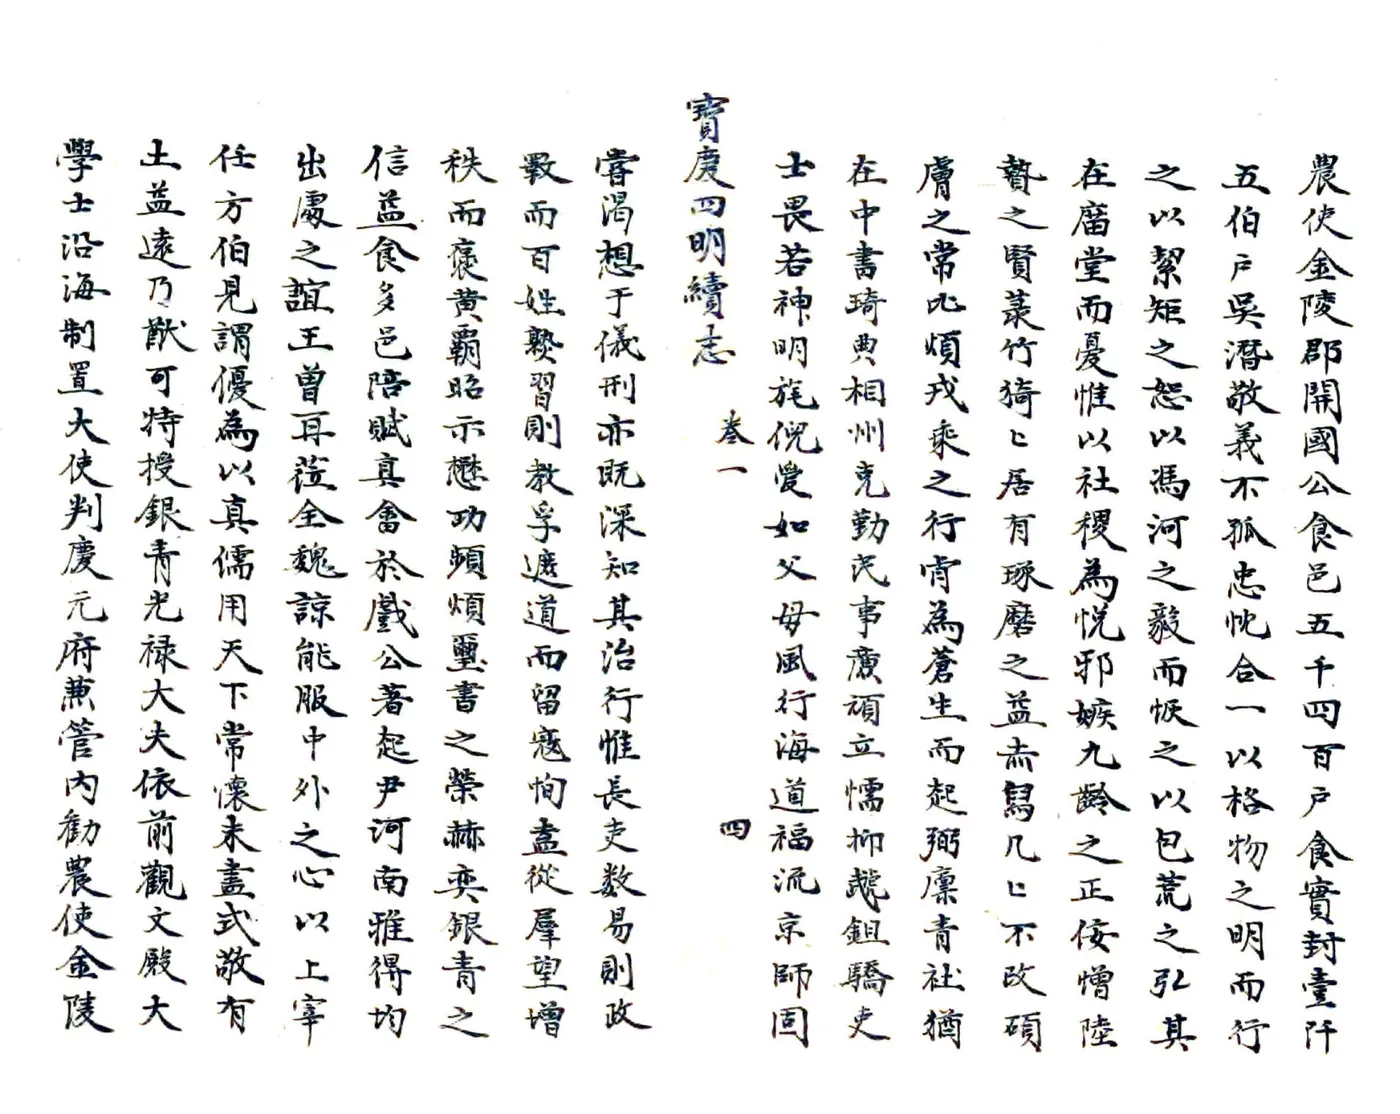 農使金陵郡開國公食邑五千四百戶食實封壹阡
五伯戶吳潛敬義不孤忠忱合一以格物之明而行
之以絜矩之恕以馮河之毅而恢之以包荒之弘其
在庿堂而憂惟以社稷為悦邪嫉九齡之正佞憎陸
贄之賢菉竹猗〻居有琢磨之益赤舄几〻不改碩
膚之常比煩戎乘之行肯為蒼生而起弼廩青社猶
在中書琦典相州克勤民事廣頑立懦抑彪鉏驕吏
士畏若神明旄倪愛如父母風行海道福流京師固
寶慶四明續志 卷一 四
嘗渴想于儀刑亦既深知其治行惟長吏数易則政
斁而百姓褻習則教孚遮道而留寇恂盍從羣望增
秩而褒黄霸昭示懋功頻煩璽書之榮赫奕銀青之
信益食多邑陪賦真畬於戲公著起尹河南雅得均
出處之誼王曽再蒞全魏諒能服中外之心以上宰
任方伯見謂優為以真儒用天下常懷未盡式敬有
土益遠乃猷可特授銀青光禄大夫依前觀文殿大
學士沿海制置大使判慶元府兼管内勸農使金陵